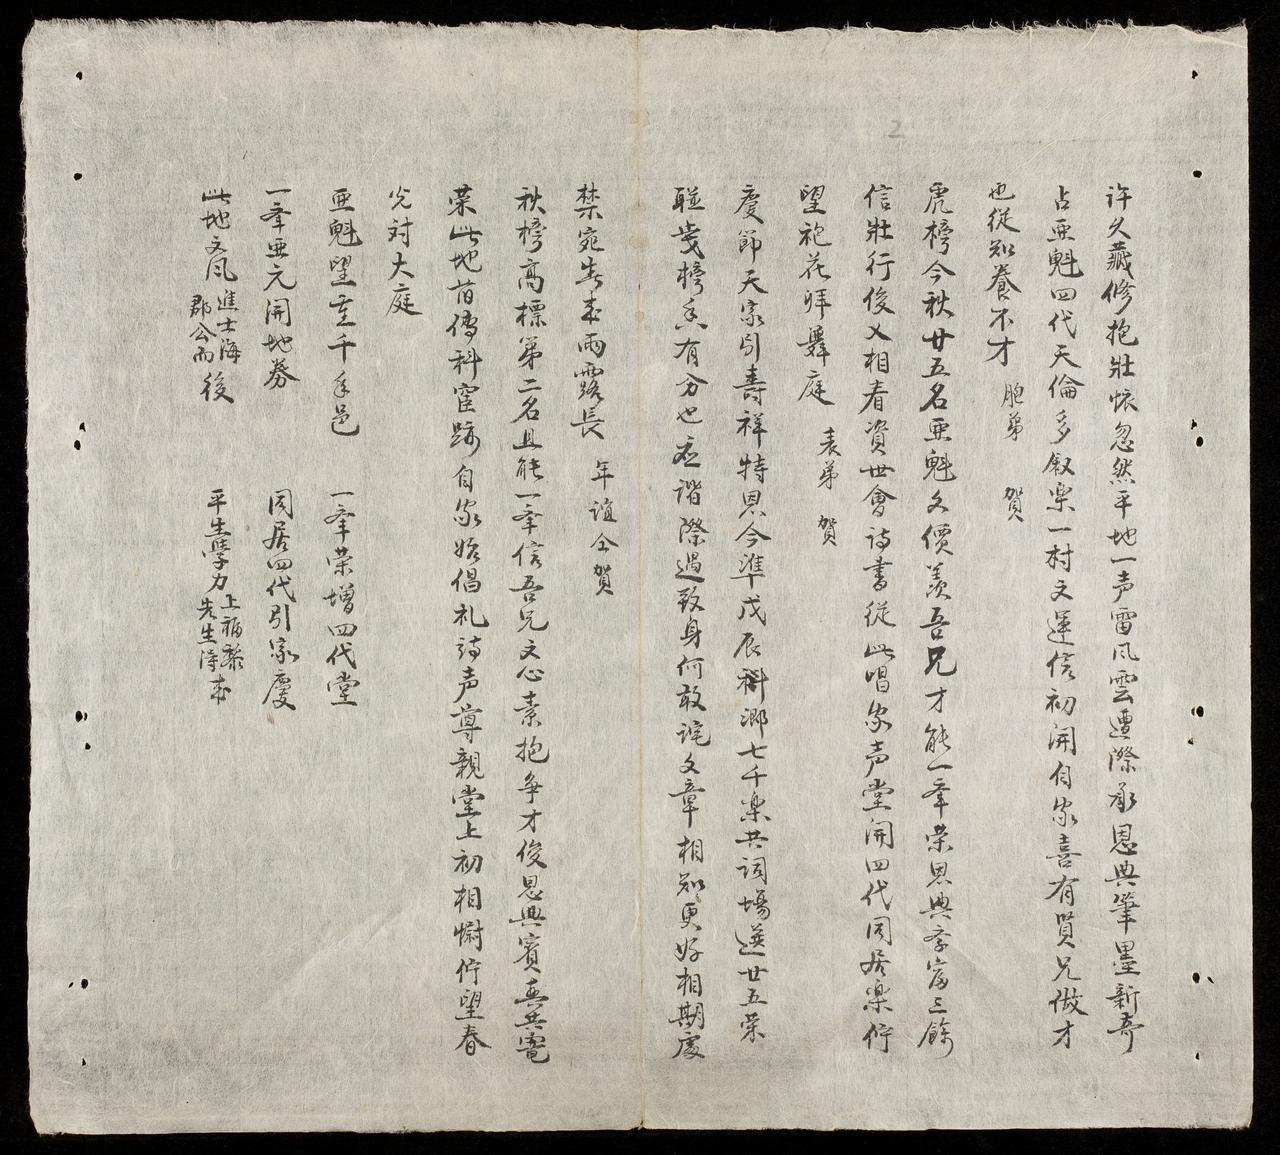 2
許久藏修抱壯懷忽然平地一声雷风雲遭際承恩典筆墨新奇
占亜魁四代天倫多叙楽一村文運信初開自家喜有賢兄做才
也従知養不才 胞弟 賀
虎榜今秋廿五名亜魁文價羨吾兄才能一峯荣恩典李富三餘
信壯行俊乂相看資世會詩書従此唱家声堂開四代同居楽佇
望袍花拜舞庭 表弟 賀
慶節天家引壽祥特恩今準戊辰科鄉七千楽共詞場選廿五荣
聯虎榜香有分也應諧際遇致身何敢詫文章相知更好相期慶
禁宛先春雨露長 年誼仝賀
秋榜高標第二名且能一峯信吾兄文心素抱争才俊恩典賓興共寵
荣此地旧傳科宦跡自家始倡礼詩声尊親堂上初相慰佇望春
光対大庭
亜魁望重千年邑 一峯荣增四代堂
一峯亜元開地券 同居四代引家慶
此地文风進士海郡公而後 平生學力上福黎先生得来